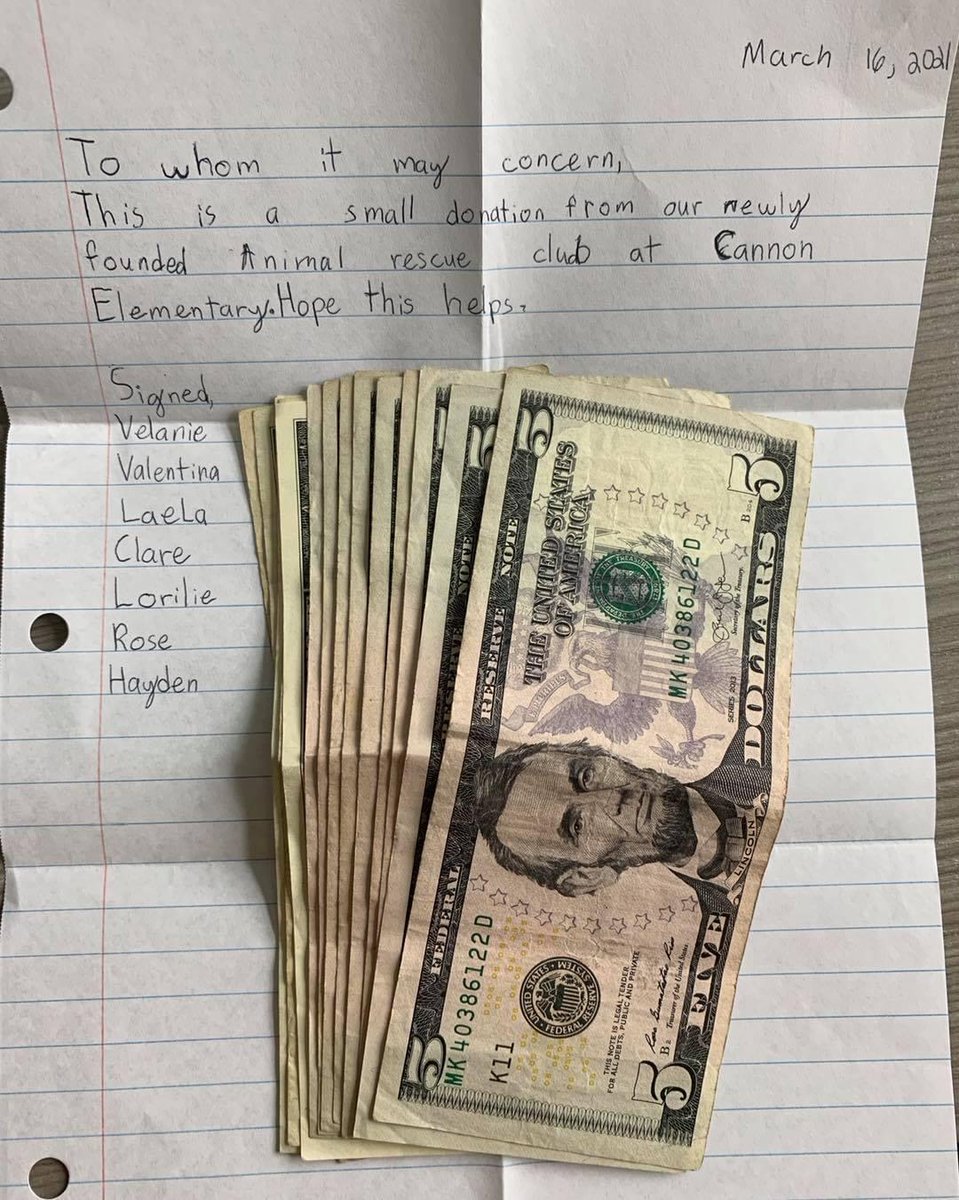 March 16, 2021
To whom it may concern,
This is a small donation from our newly
founded Animal rescue club at Cannon
Elementary. Hope this helps.
Signed,
Velanie
Valentina
LaeLa
Clare
Lorilie
Rose
Hayden
5
5
FEDERAL RESERVE NOTE
THE UNITED STATES
OF AMERICA
MK 40386122 D
K11
MK 40386122 D
THIS NOTE IS LEGAL TENDER
FOR ALL DEBTS, PUBLIC AND PRIVATE
B2
Treasurer of the United States
SERIES 2013
Secretary of the Treasury
LINCOLN
5
FIVE DOLLARS
5